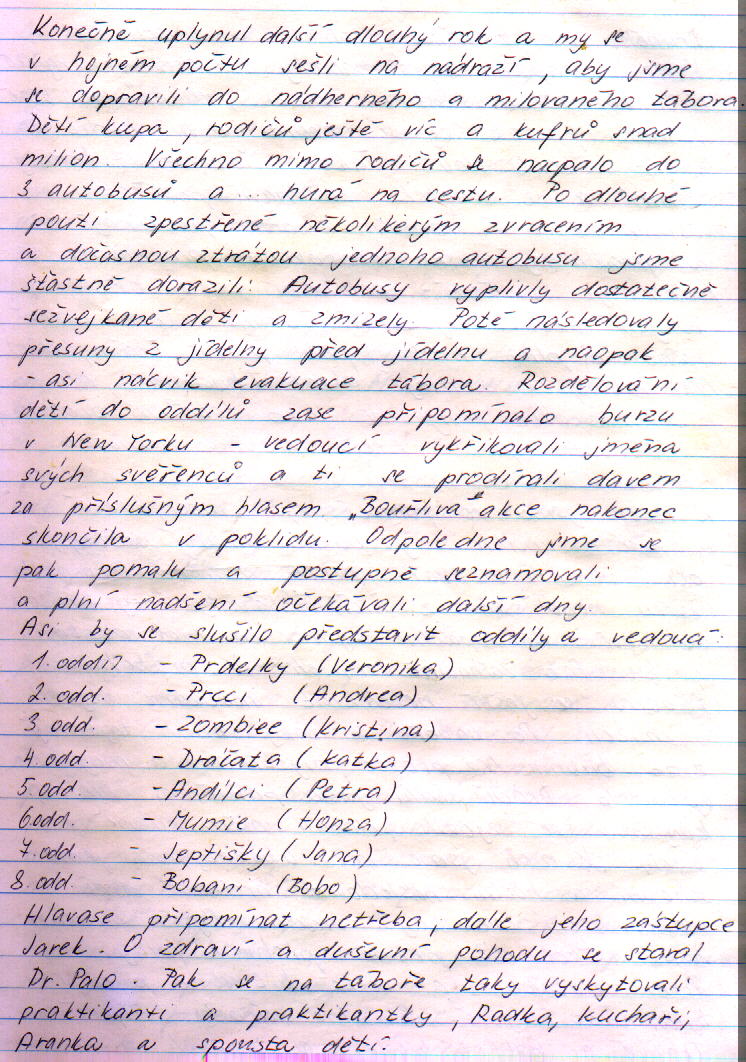 Konečně uplynul další dlouhý rok a my se
v hojném počtu sešli na nádraží, aby jsme
se dopravili do nádherného a milovaného tábora.
Dětí kupa, rodičů ještě víc a kufrů snad
milion. Všechno mimo rodičů se nacpalo do
3 autobusů a ... hurá na cestu. Po dlouhé
pouti zpestřené několikerým zvracením
a dočasnou ztrátou jednoho autobusu jsme
šťastně dorazili. Autobusy vyplivly dostatečně
sežvejkané děti a zmizely. Poté následovaly
přesuny z jídelny před jídelnu a naopak
- asi nácvik evakuace tábora. Rozdělování
dětí do oddílů zase připomínalo burzu
v New Yorku - vedoucí vykřikovali jména
svých svěřenců a ti se prodírali davem
za příslušným hlasem. „Bouřlivá" akce nakonec
skončila v poklidu. Odpoledne jme se
pak pomalu a postupně seznamovali
a plni nadšení očekávali další dny.
Asi by se slušilo představit oddíly a vedoucí:
1. oddíl - Prdelky (Veronika)
2. odd. - Prcci (Andrea)
3 odd. - Zombiee (Kristina)
4. odd. - Dráčata (Katka)
5. odd. - Andílci (Petra)
6. odd. - Mumie (Honza)
7. odd. - Jeptišky (Jana)
8. odd. - Bobani (Bobo)
Hlavase připomínat netřeba, dále jeho zástupce
Jarek. O zdraví a duševní pohodu se staral
Dr. Palo. Pak se na táboře taky vyskytovali
praktikanti a praktikantky, Radka, kuchaři,
Aranka a spousta dětí.